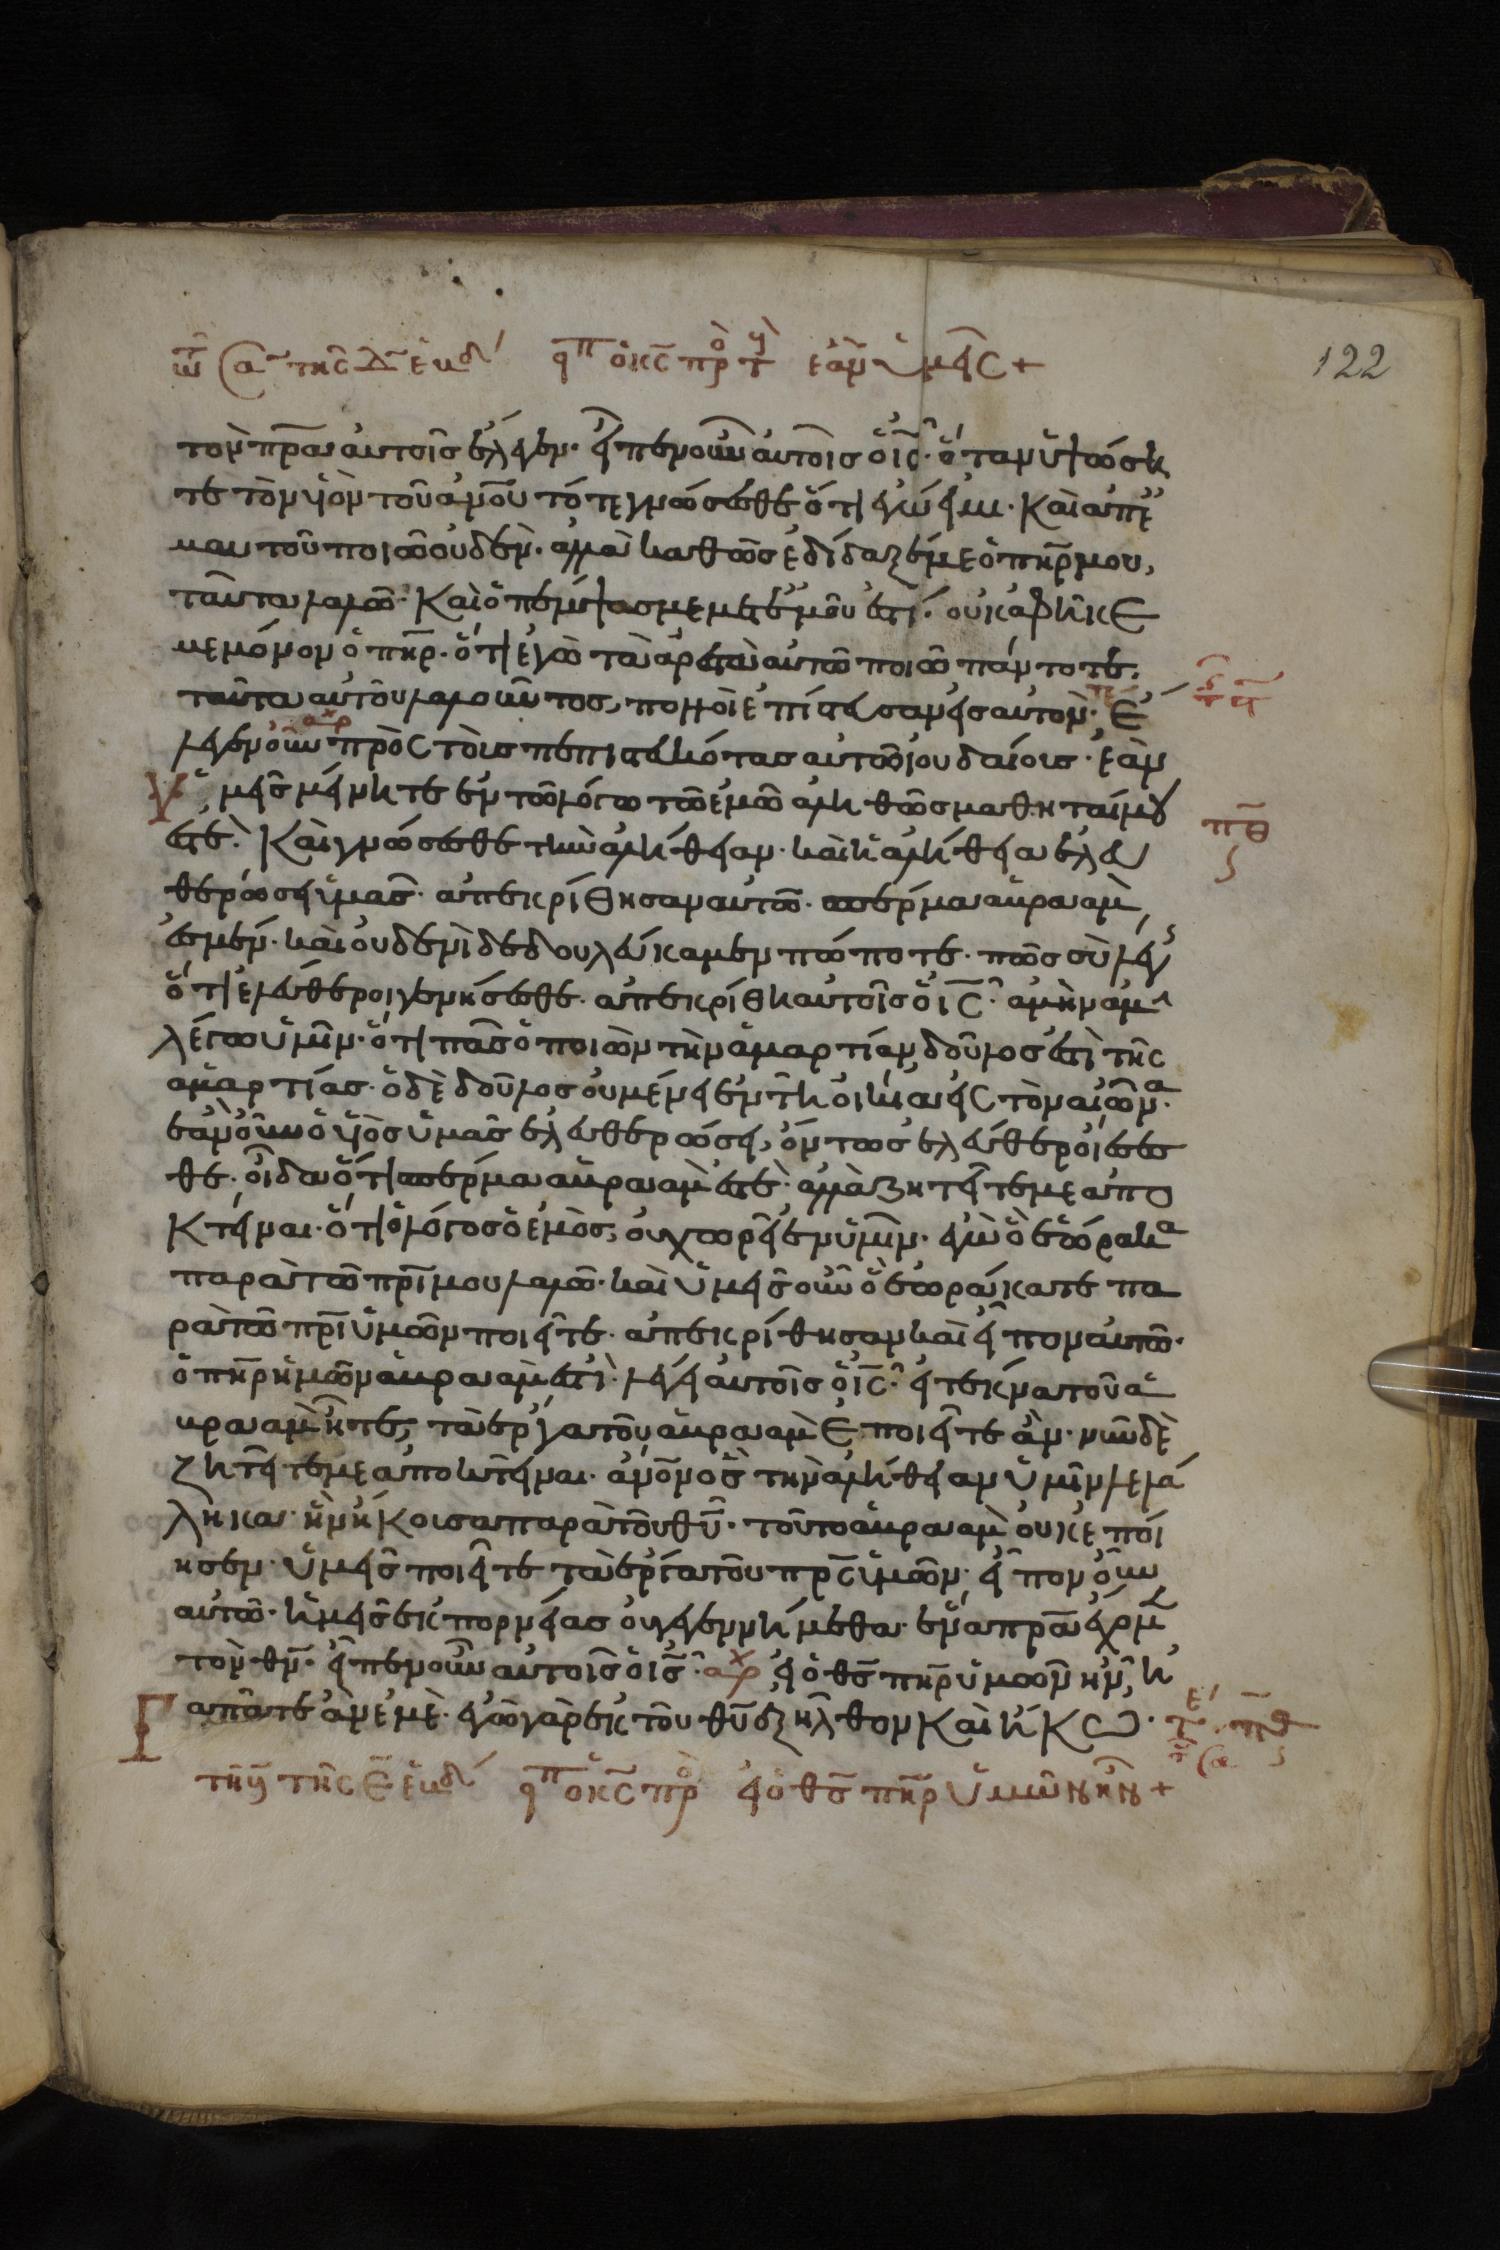 τω σα της Δ εβδ ειπ ο κς πρ τ εαν υμεις +
122
τὸν πρα αυτοῖς ἔλεγεν· εἶπεν οὖν αὐτοῖς ὁ ις· ὅταν ὑψώση
τε τὸν υἱὸν τοῦ ανου τότε γνώσεσθε ὅτι ἐγώ εἰμι· Καὶ ἀπ ἐ
μαυτοῦ ποιῶ οὐδὲν· ἀλλὰ καθῶς ἐδίδαξεν με ὁ πηρ μου,
ταῦτα λαλῶ· Καὶ ὁ πέμψας με μετ ἐμοῦ ἐστί· οὐκ ἀφῆκε
με μόνον ὁ πηρ· ὅτι ἐγὼ τὰ ἀρεστὰ αὐτῶ ποιῶ πάντοτε·
ταῦτα αὐτοῦ λαλοῦντος, πολλοὶ ἐπίστευσαν εἰς αὐτόν· Ἔ
λεγεν οὖν πρὸς τοὺς πεπιστευκότας αὐτῶ ἰουδαίους· ἐὰν
Ὑμεῖς μείνητε ἐν τῶ λόγω τῶ ἐμῶ ἀληθῶς μαθηταί μου
ἐστέ· Καὶ γνώσεσθε τὴν ἀλήθειαν· καὶ ἡ ἀλήθεια ἐλευ
θερώσει ὑμᾶς· ἀπεκρίθησαν αὐτῶ· σπέρμα ἀβραάμ
ἐσμέν· καὶ οὐδενὶ δεδουλεύκαμεν πώποτε· πῶς σὺ λέγεις
ὅτι ἐλεύθεροι γενήσεσθε· ἀπεκρίθη αὐτοῖς ὁ ις· ἀμὴν ἀμὴν
λέγω ὑμῖν· ὅτι πᾶς ὁ ποιῶν τὴν ἁμαρτίαν δοῦλος ἐστὶ τῆς
ἁμαρτίας· ὁ δὲ δοῦλος οὐ μένει ἐν τῆ οἰκία εἰς τὸν αἰῶνα·
ἐὰν οὖν ὁ υἱὸς ὑμᾶς ἐλευθερώση, ὄντως ἐλεύθεροι ἔσεσ
θε· οἶδα ὅτι σπέρμα ἀβραάμ ἐστὲ· ἀλλὰ ζητεῖτε με ἀπο
Κτεῖναι· ὅτι ὁ λόγος ὁ ἐμὸς, οὐ χωρεῖ ἐν ὑμῖν· ἐγὼ ὃ ἑώρακα
παρὰ τῶ πρι μου λαλῶ· καὶ ὑμεῖς οὖν ὃ ἑωράκατε πα
ρὰ τῶ πρι ὑμῶν ποιεῖτε· ἀπεκρίθησαν καὶ εἶπον αὐτῶ·
ὁ πηρ ἡμῶν ἀβραάμ ἐστὶ· λέγει αὐτοῖς ὁ ις· εἰ τέκνα τοῦ ἀ
βραὰμ ἦτε, τὰ ἔργα τοῦ ἀβραὰμ ἐποιεῖτε ἄν· νῦν δὲ
ζητεῖτε με ἀποκτεῖναι· ἄνον ὃς τὴν ἀλήθειαν ὑμῖν λελά
ληκα· ἣν ἤκουσα παρὰ τοῦ θυ· τοῦτο ἀβραὰμ οὐκ ἐποί
ησεν· ὑμεῖς ποιεῖτε τὰ ἔργα τοῦ πρς ὑμῶν· εἶπον οὖν
αὐτῶ· ἡμεῖς ἐκ πορνείας οὐ γεγεννήμεθα· ἕνα πρα ἔχομεν
τὸν θν· εἶπεν οὖν αὐτοῖς ὁ ις· αρχ εἰ ὁ θς πηρ ὑμῶν ἦν, ἠ
Γαπᾶτε ἂν ἐμὲ· ἐγὼ γὰρ ἐκ τοῦ θυ ἐξῆλθον Καὶ ἥκω·
τῆ γ τῆς Ε εβδ ειπ ο κς πρ εἰ ὁ θς πηρ ὑμῶν ἦν +
πθ